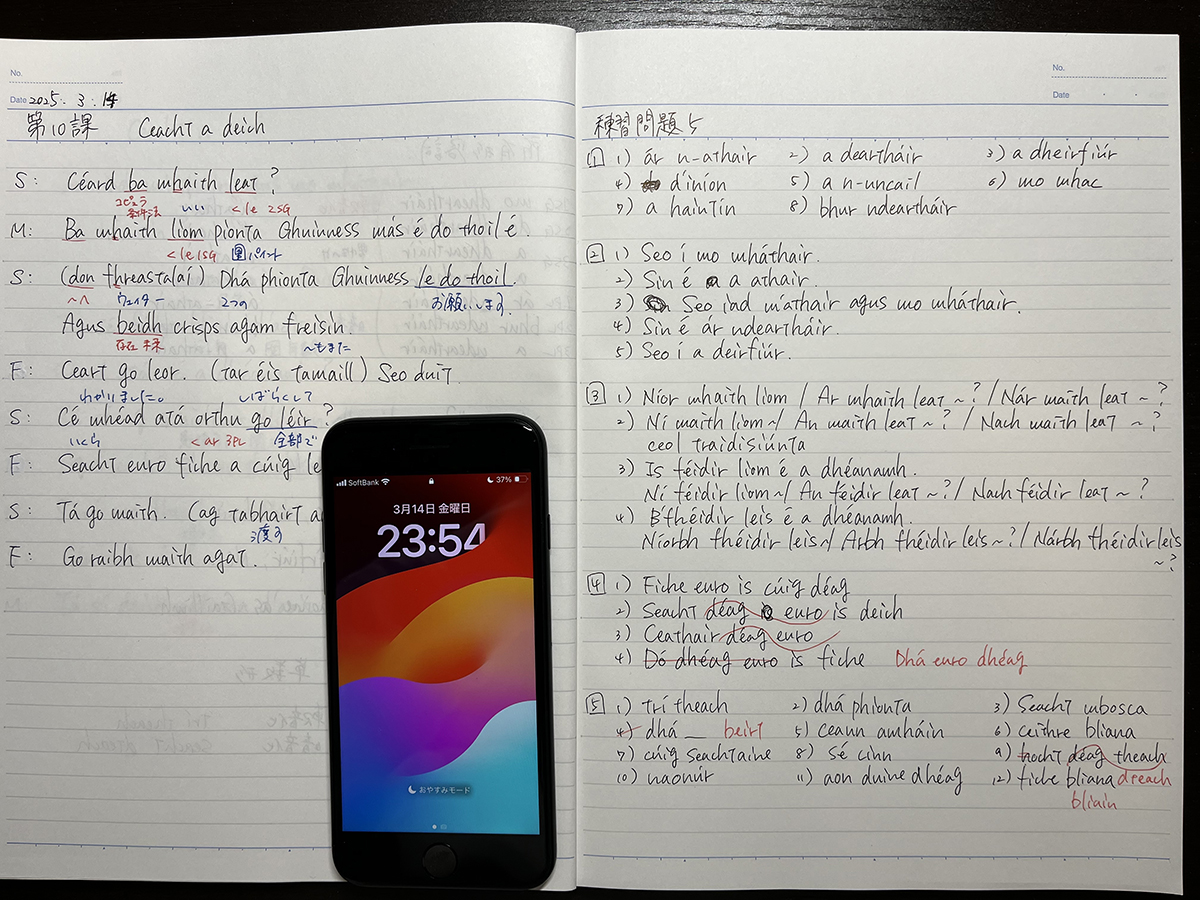 No.
Date 2025. 3. 14
第10課 Ceacht a deich
S: Céard ba mhaith leat?
コピュラ 条件法 いい < le 2SG
M: Ba mhaith liom pionta Ghuinness más é do thoil é
< le 1SG パイント
S: (don fhreastalaí) Dhá phionta Ghuinness le do thoil.
〜へ ウェイター 2つの お願いします.
Agus beidh crisps agam freisin.
存在 未来 〜もまた
F: Ceart go leor. (tar éis tamaill) Seo duit.
わかりました。 しばらくして
S: Cé mhéad atá orthu go léir?
いくら < ar 3PL 全部で
F: Seacht euro fiche a cúig
S: Tá go maith. (ag tabhairt
渡す
F: Go raibh maith agat.
SoftBank 37%
3月14日 金曜日
23:54
おやすみモード
No.
Date
練習問題 5
1 1) ár n-athair 2) a deartháir 3) a dheirfiúr
4) d'iníon 5) a n-uncail 6) mo mhac
7) a haintín 8) bhur ndeartháir
2 1) Seo í mo mháthair.
2) Sin é a athair.
3) Seo iad m'athair agus mo mháthair.
4) Sin é ár ndeartháir.
5) Seo í a deirfiúr.
3 1) Níor mhaith liom / Ar mhaith leat ~? / Nár maith leat ~?
2) Ní maith liom ~/ An maith leat ~? / Nach maith leat ~?
ceol traidisiúnta
3) Is féidir liom é a dhéanamh.
Ní féidir liom ~/ An féidir leat ~? / Nach féidir leat ~?
4) B'fhéidir leis é a dhéanamh.
Níorbh fhéidir leis ~/ Arbh fhéidir leis ~? / Nárbh fhéidir leis
~?
4 1) Fiche euro is cúig déag
2) Seacht déag euro is deich
3) Ceathair déag euro
4) Dó dhéag euro is fiche Dhá euro dhéag
5 1) trí theach 2) dhá phionta 3) Seacht mbosca
4) dhá _ beirt 5) ceann amháin 6) ceithre bliana
7) cúig seachtaine 8) sé cinn 9) hocht déag theach
10) naonúr 11) aon duine dhéag 12) fiche bliana dteach
bliain